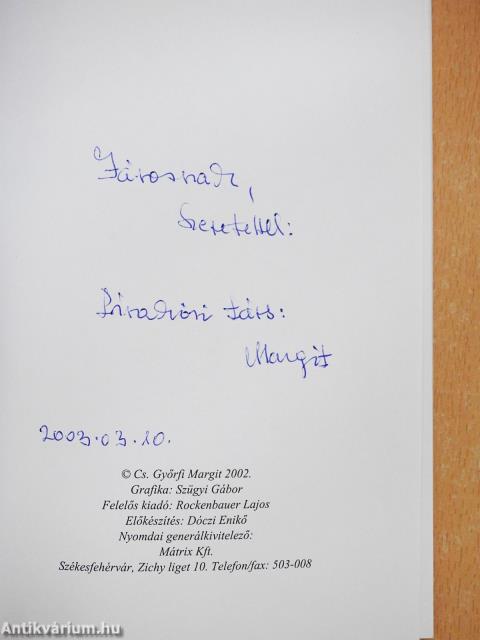 Jánosnak,
Szeretettel:
társ:
Margit
2003.03.10.
© Cs. Győrfi Margit 2002.
Grafika: Szügyi Gábor
Felelős kiadó: Rockenbauer Lajos
Előkészítés: Dóczi Enikő
Nyomdai generálkivitelező:
Mátrix Kft.
Székesfehérvár, Zichy liget 10. Telefon/fax: 503-008
Antikvárium.hu